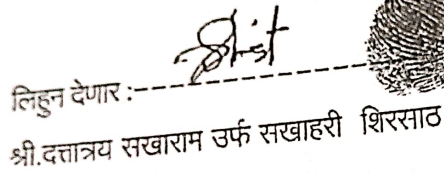 लिहुन देणार :-
श्री.दत्तात्रय सखाराम उर्फ सखाहरी शिरसाठ